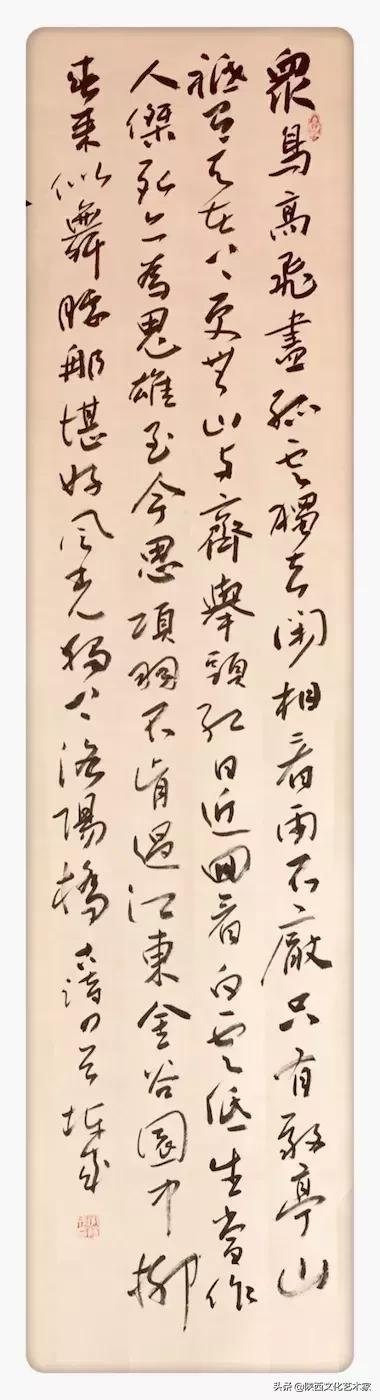 眾鳥高飛盡孤雲獨去閑相看兩不厭只有敬亭山
祗有天在上更無山与齊舉頭紅日近回看白雲低生當作
人傑死亦為鬼雄至今思項羽不肯過江東金谷園中柳
春來似舞腰那堪好風光獨上洛陽橋 古詩四首
头条 @陕西文化艺术家